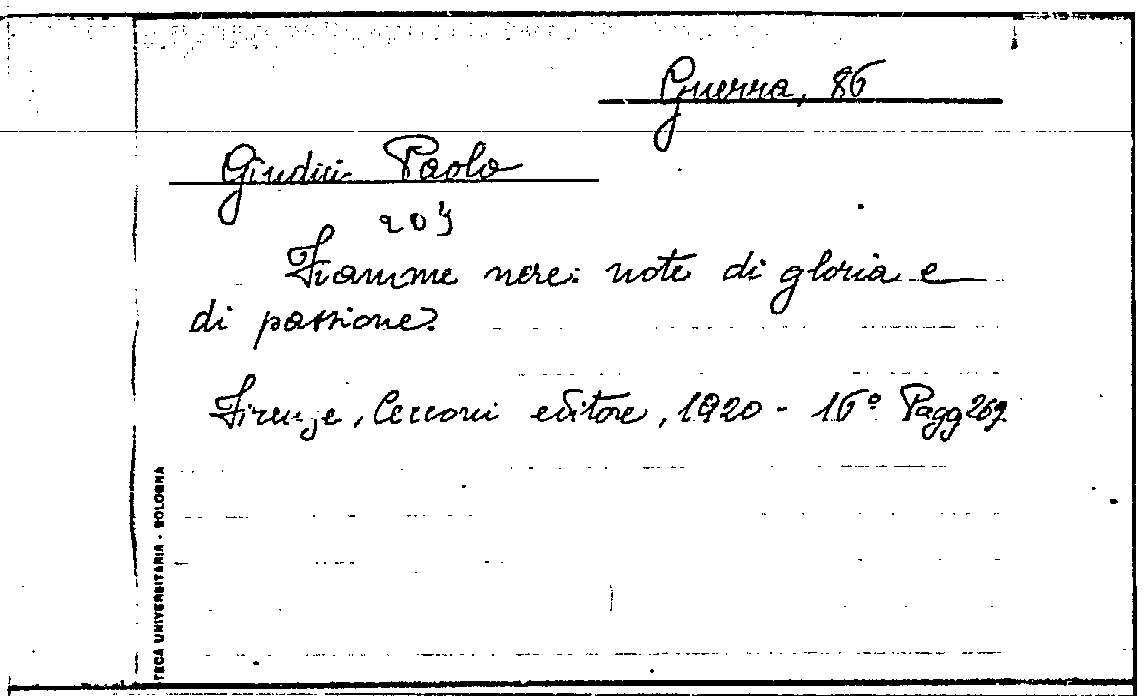 Guerra, 86
Giudici Paolo
203
Fiamme nere: note di gloria e
di passione.
Firenze, Cecconi editore, 1920 - 16° Pagg 269.
TECA UNIVERSITARIA - BOLOGNA